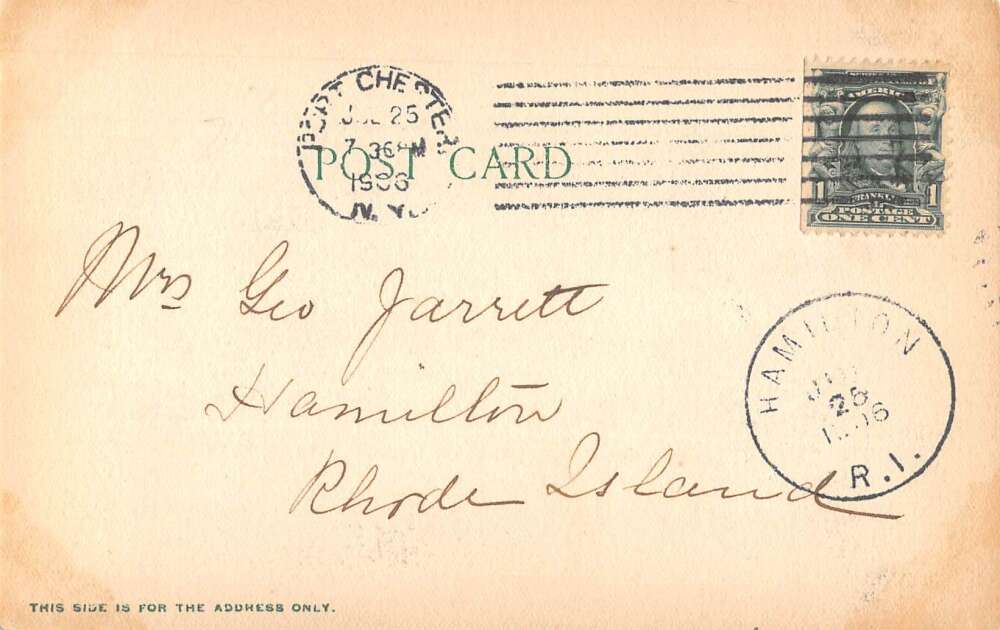 PORT CHESTER
JUL 25
7-36 PM
1906
N.Y.
POST CARD
AMERIC
1 FRANKLIN 1
POSTAGE
ONE CENT
Mrs Geo Jarrett
Hamilton
Rhode Island
HAMILTON
26
1906
R.I.
THIS SIDE IS FOR THE ADDRESS ONLY.